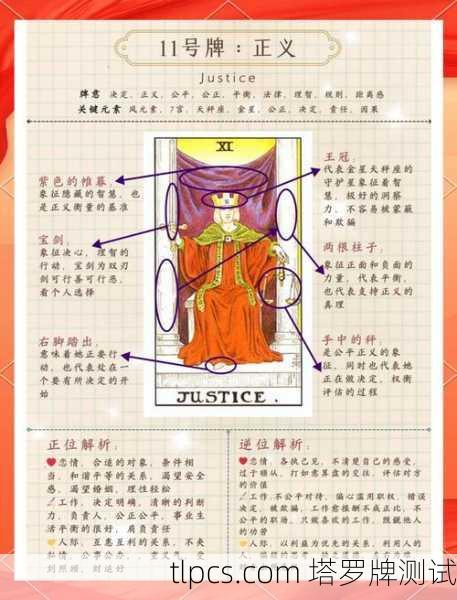 11号牌：正义
Justice
牌意 决定、正义、公平、公正、平衡、法律、理智、规则、距离感
关键元素 风元素、7宫、天秤座、金星、公正、决定、责任、因果
XI
紫色的帷幕：
象征隐藏的智慧，也
是正义衡量的基准
宝剑：
象征决心，理智的
行动，宝剑为双刃
剑可行善可行恶，
看个人选择
右脚踏出：
意味着她正要行
动，也代表处在一
个要有所决定的开
始
王冠：
代表金星天秤座的
守护星象征着智
慧，极好的洞察
力，不容易被蒙蔽
和欺骗
两根柱子：
象征正面和负面的
力量，代表平衡，
也代表支持正义的
真理
手中的秤：
是公平正义的象
征，同时也代表她
正在做决定，权衡
评估的过程
JUSTICE.
正位解析：
恋情，合适的对象，条件相
当，和谐平等的关系，渴望安全
感，渴望婚姻，理性轻松
工作，决定明确，清晰的判断
力，负责人，公正公平，事业生
活平衡的很好，肩负责任
人际，互惠互利的关系，不夹
私情，公事公办，重义气，受
到照顾，财运好
逆位解析：
恋情，各执己见，不清楚自己的感受，
过于顺从，打如意算盘的交往，评估对方
的价值
工作，不公平对待，偏心滥用职权，错误
决定，被欺骗，工作愈报酬不成正比，不
公平的职场，只做喜欢的工作，既餓他人
的功劳
人际，以利益为优先的关系，利用人的
tlpcs.com 塔罗牌测试